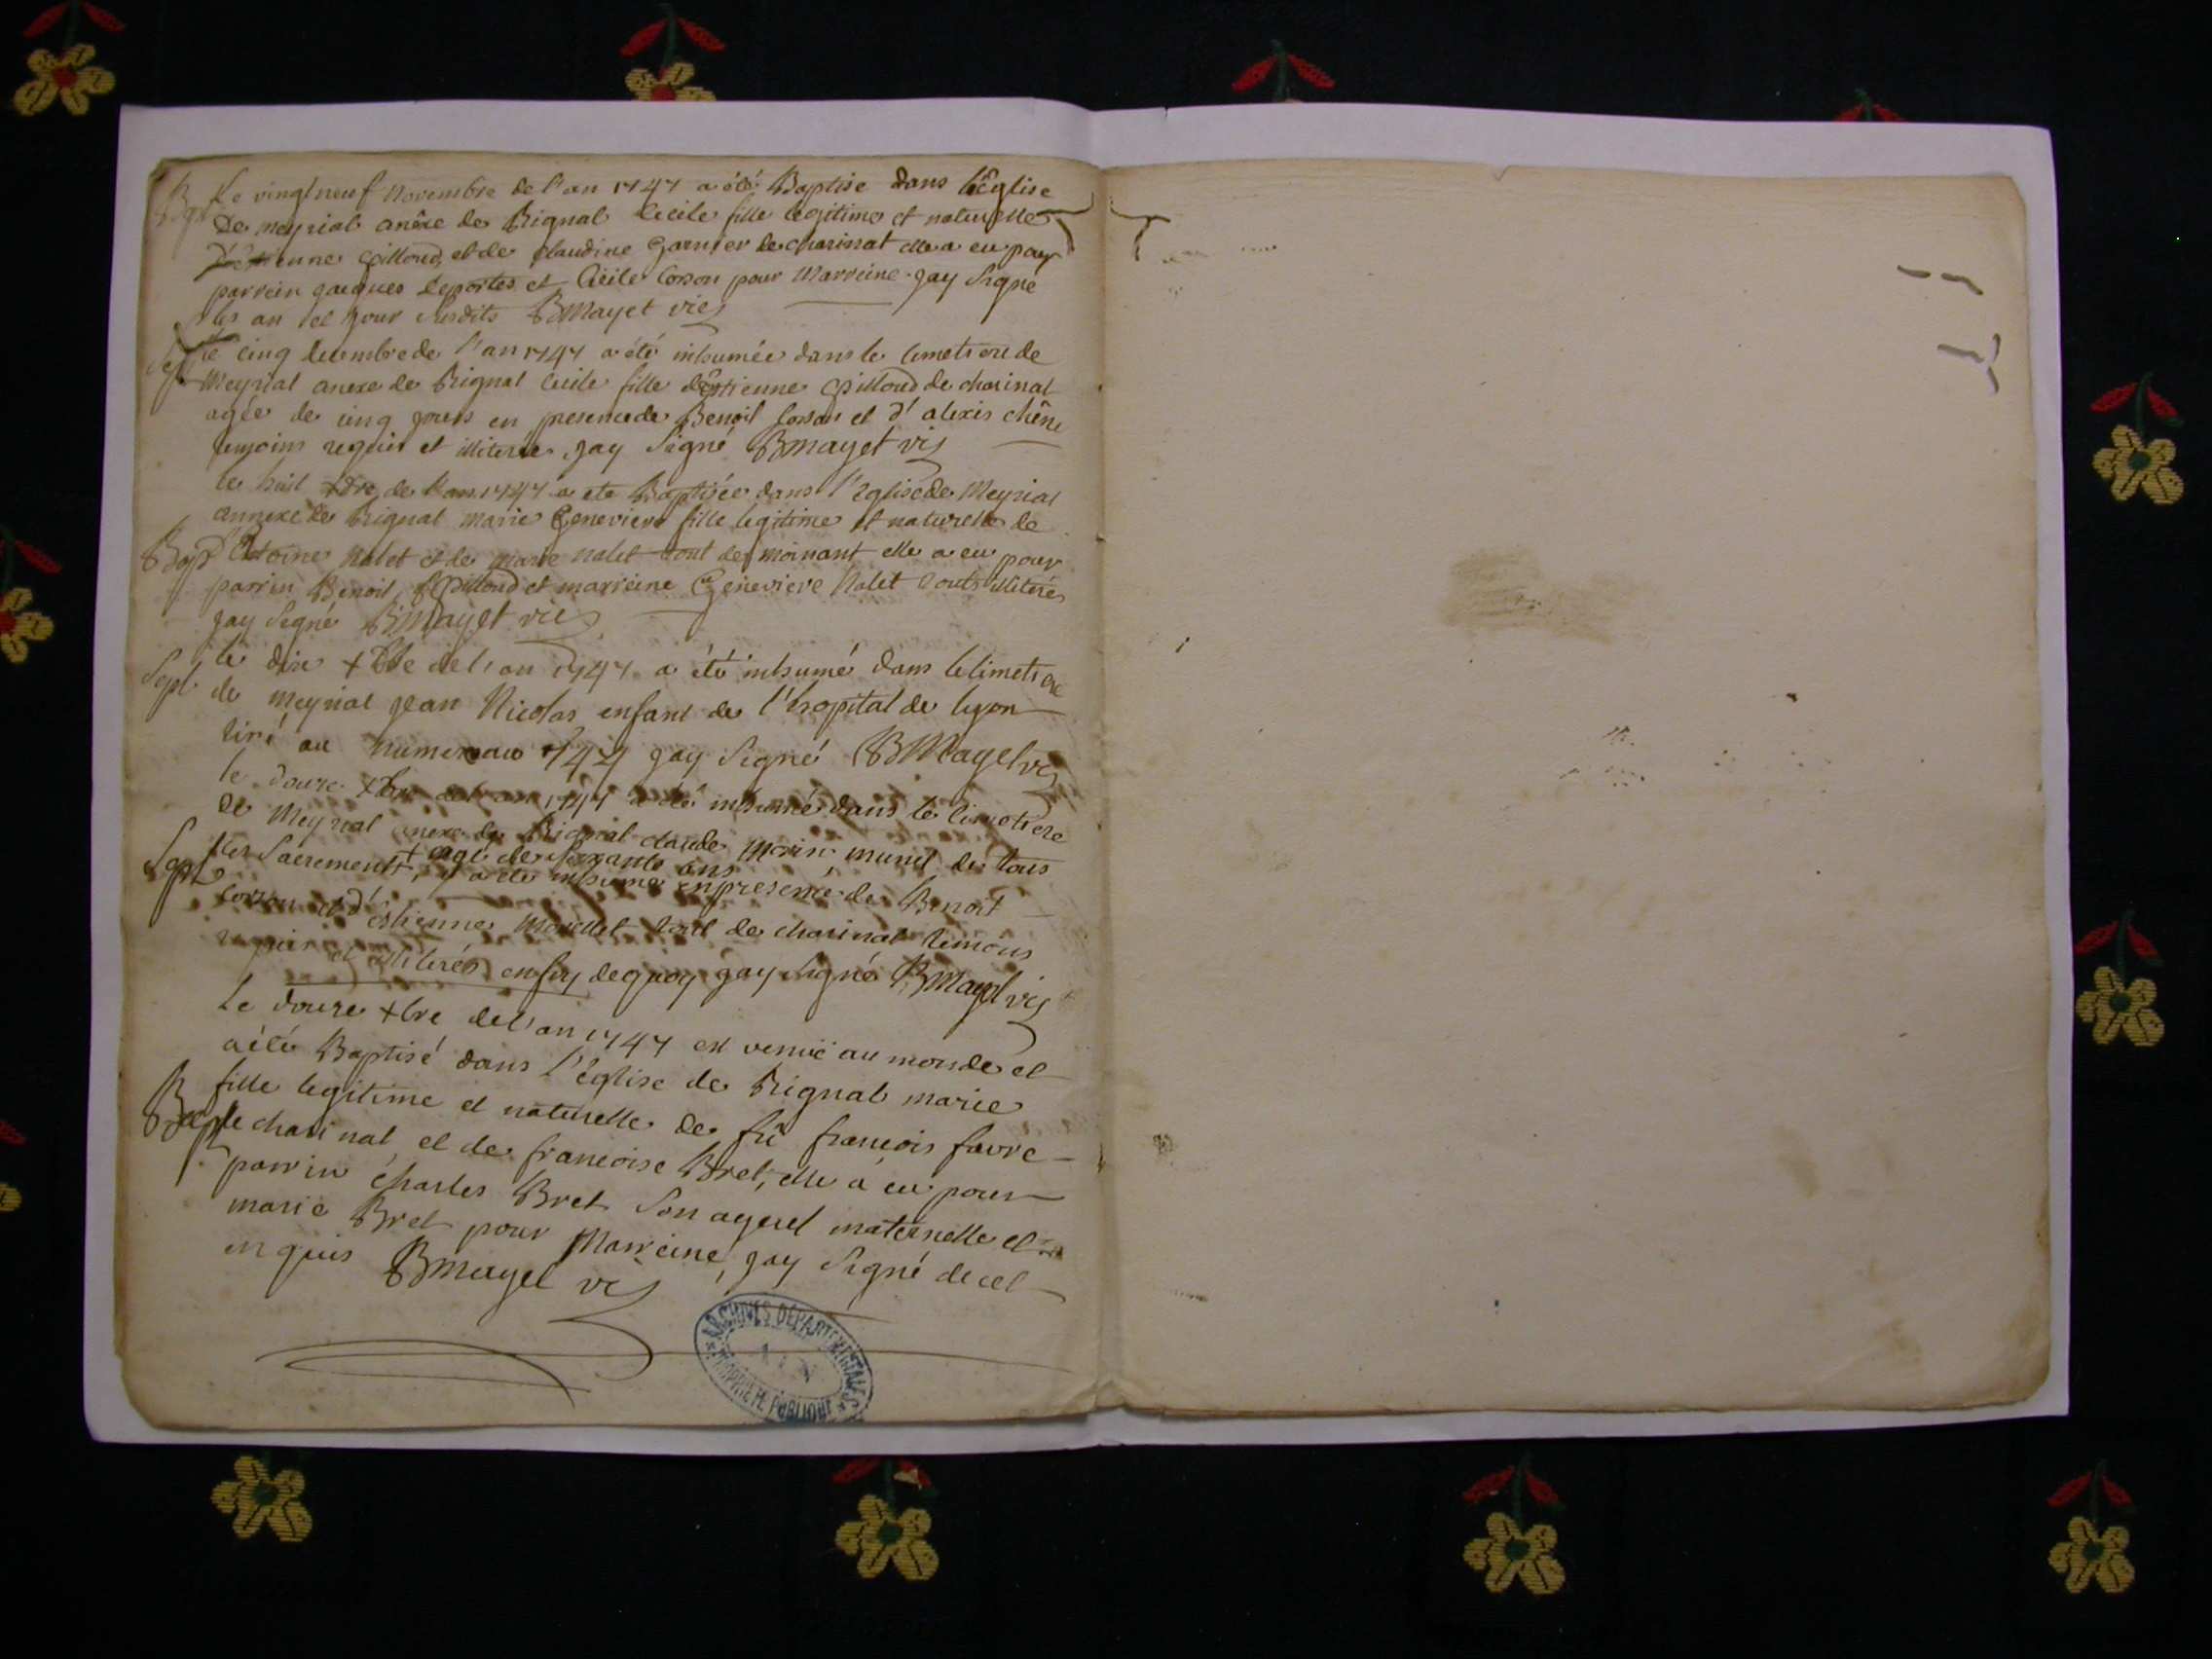 Bapt Le vingt neuf novembre de l'an 1747 a été Baptise dans l'Eglise
De meyriat anêxe de Rignat Cecile fille legitime et naturelle
D'êtienne Pilloud et de Claudine Garnier de charinat elle a eu pour
parrein jacques deportes et Cécile Corson pour Marreine jay Signé
les an et jour Susdits BMayet vic
Sept le cinq decembre de l'an 1747 a été inhumée dans le Cimetiere de
Meyriat anexe de Rignat Cecile fille d'êtienne Pilloud de charinat
agée de cinq jours en presence de Benoit Corson et d'alexis chêne
temoins requis et illiteres jay Signé BMayet vic
le huit xbre de l'an 1747 a ete Baptisée dans l'eglise de Meyriat
annexe de Rignat marie Genevieve fille legitime et naturelle de
Bapt Antoine Nalet et de marie nalet tout de moinant elle a eu pour
parrin Benoit Pilloud et marreine Genevieve Nalet touts illiterés
jay Signé BMayet vic
Sept le dix xbre de l'an 1747 a été inhumé dans le Cimetiere
de meyriat jean Nicolas enfant de l'hopital de lyon
tiré au numereau 747 jay Signé BMayet vic
le douze xbre de l'an 1747 a été inhumé dans le Cimetiere
De Meyriat anexe de Rignat claude Morin munit de tous
Sept les Sacrements, + agé de Soixante ans
il a été inhumé en presence de Benoit
Corson et d'estienne Morellet tout de charinat temoins
requis et illiterés en foy de quoy jay Signé BMayet vic
Le douze xbre de l'an 1747 est venue au monde et
a été Baptisé dans l'église de Rignat marie
fille legitime et naturelle de fû francois favre
Bapt de charinat, et de francoise Bret, elle a eu pour
parrin Charles Bret Son ayeul maternelle et
marie Bret pour Marreine, jay Signé de cel
enquis BMayet vic
ARCHIVES DEPARTEMENTALES
AIN
PROPRIETE PUBLIQUE